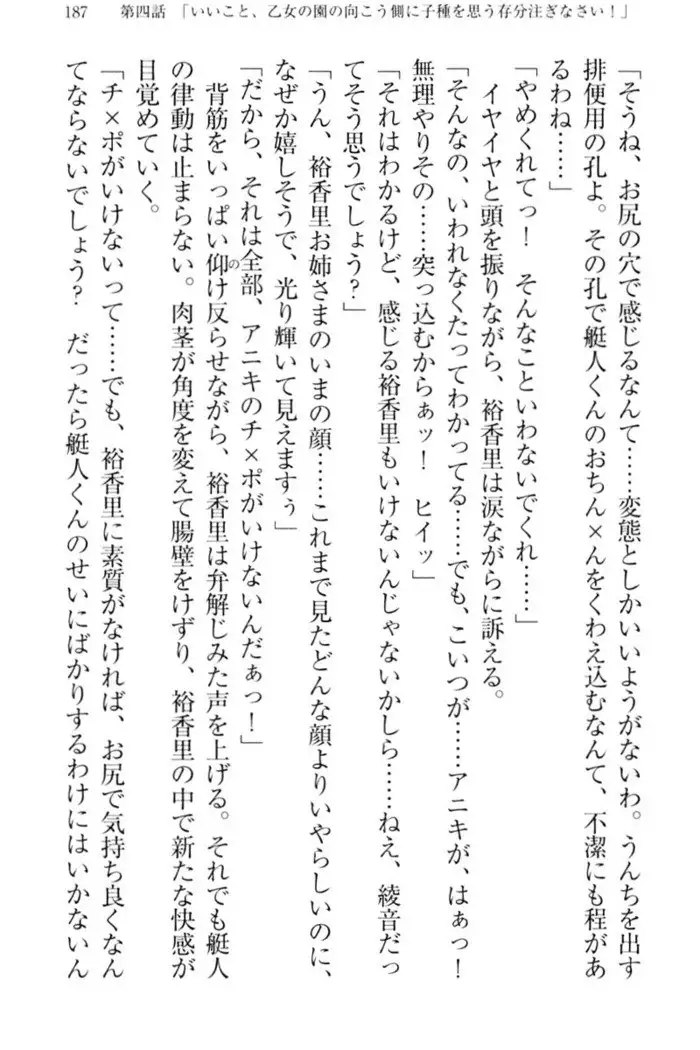 187　第四話　「いいこと、乙女の園の向こう側に子種を思う存分注ぎなさい！」
「そうね、お尻の穴で感じるなんて……変態としかいいようがないわ。うんちを出す
排便用の孔よ。その孔で艇人くんのおちん×んをくわえ込むなんて、不潔にも程があ
るわね……」
「やめくれてっ！　そんなこといわないでくれ……」
　イヤイヤと頭を振りながら、裕香里は涙ながらに訴える。
「そんなの、いわれなくたってわかってる……でも、こいつが……アニキが、はぁっ！
無理やりその……突っ込むからぁッ！　ヒイッ」
「それはわかるけど、感じる裕香里もいけないんじゃないかしら……ねえ、綾音だっ
てそう思うでしょう？」
「うん、裕香里お姉さまのいまの顔……これまで見たどんな顔よりいやらしいのに、
なぜか嬉しそうで、光り輝いて見えますぅ」
「だから、それは全部、アニキのチ×ポがいけないんだぁっ！」
　背筋をいっぱい仰け反らせながら、裕香里は弁解じみた声を上げる。それでも艇人
の律動は止まらない。肉茎が角度を変えて腸壁をけずり、裕香里の中で新たな快感が
目覚めていく。
「チ×ポがいけないって……でも、裕香里に素質がなければ、お尻で気持ち良くなん
てならないでしょう？　だったら艇人くんのせいにばかりするわけにはいかないん